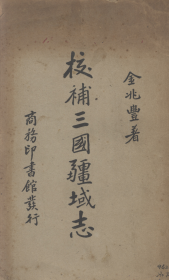 金兆豐著
校補三國疆域志
商務印書館發行